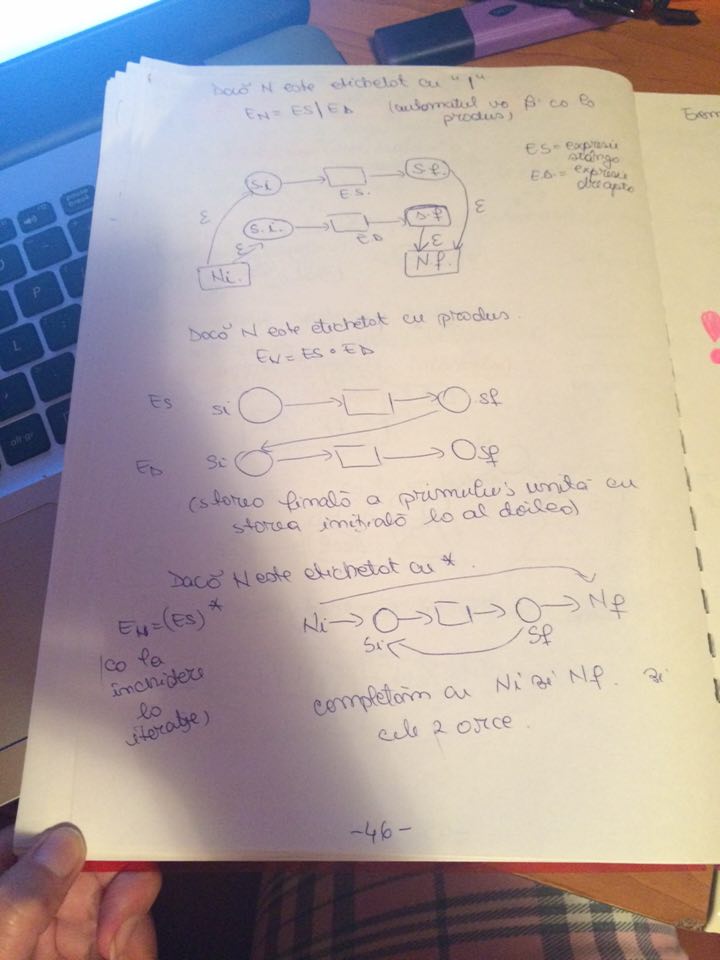 Dacă N este etichetat cu "|"
EN = ES | ED (automatul va fi ca la
produs)
ES = expresie
stânga
ED = expresie
dreapta
si. ES. sf.
ε ε
s.i. ED s.f
ε ε
Ni. Nf.
Dacă N este etichetat cu produs.
EN = ES • ED
ES si sf
ED si sf
(starea finală a primului unită cu
starea inițială la al doilea)
Dacă N este etichetat cu *.
EN = (ES)*
Ni Nf
Si Sf
(ca la
închidere
la
iterație)
completăm cu Ni și Nf. și
cele 2 arce.
-46-
P
L
alt gr